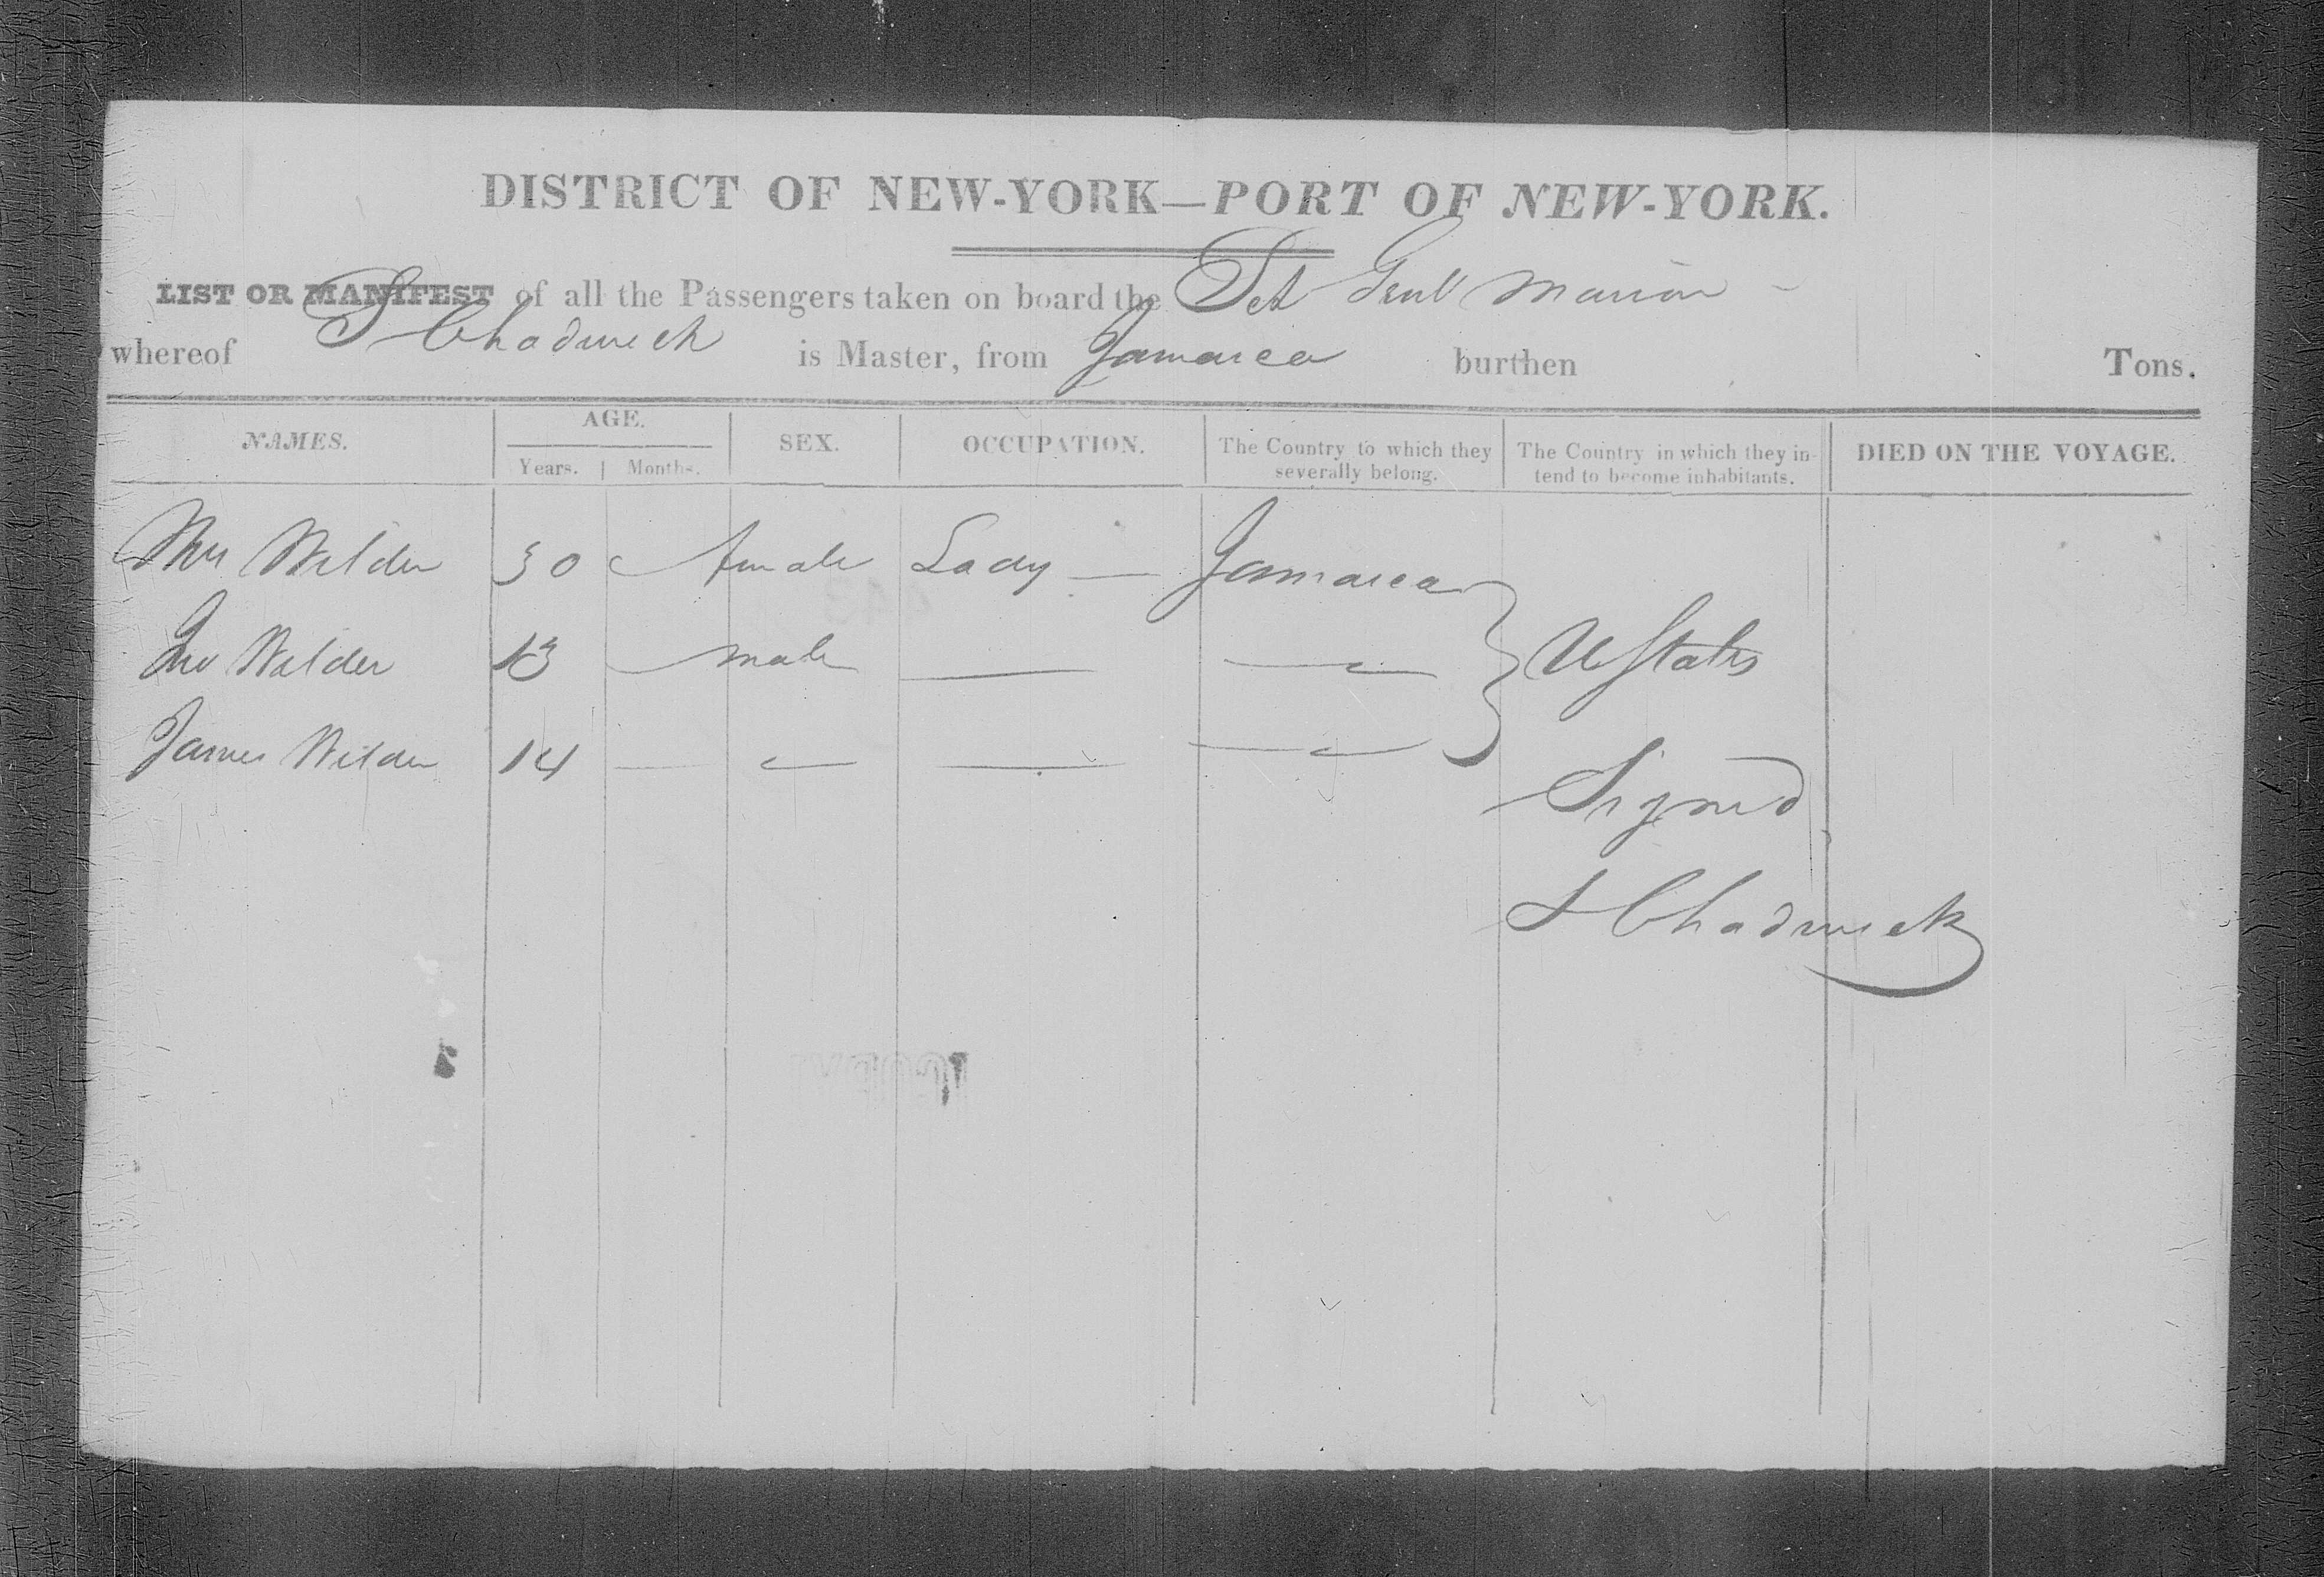 DISTRICT OF NEW-YORK—PORT OF NEW-YORK.
LIST OR MANIFEST of all the Passengers taken on board the Sch Genl Marion
whereof S Chadwick is Master, from Jamaica burthen Tons.
NAMES. AGE. SEX. OCCUPATION. The Country to which they severally belong. The Country in which they intend to become inhabitants. DIED ON THE VOYAGE.
Years. Months.
Mrs Wilder 30 female Lady — Jamaica
Jno Wilder 13 male — —
UStates
James Wilder 14 — — — —
Signed
S Chadwick